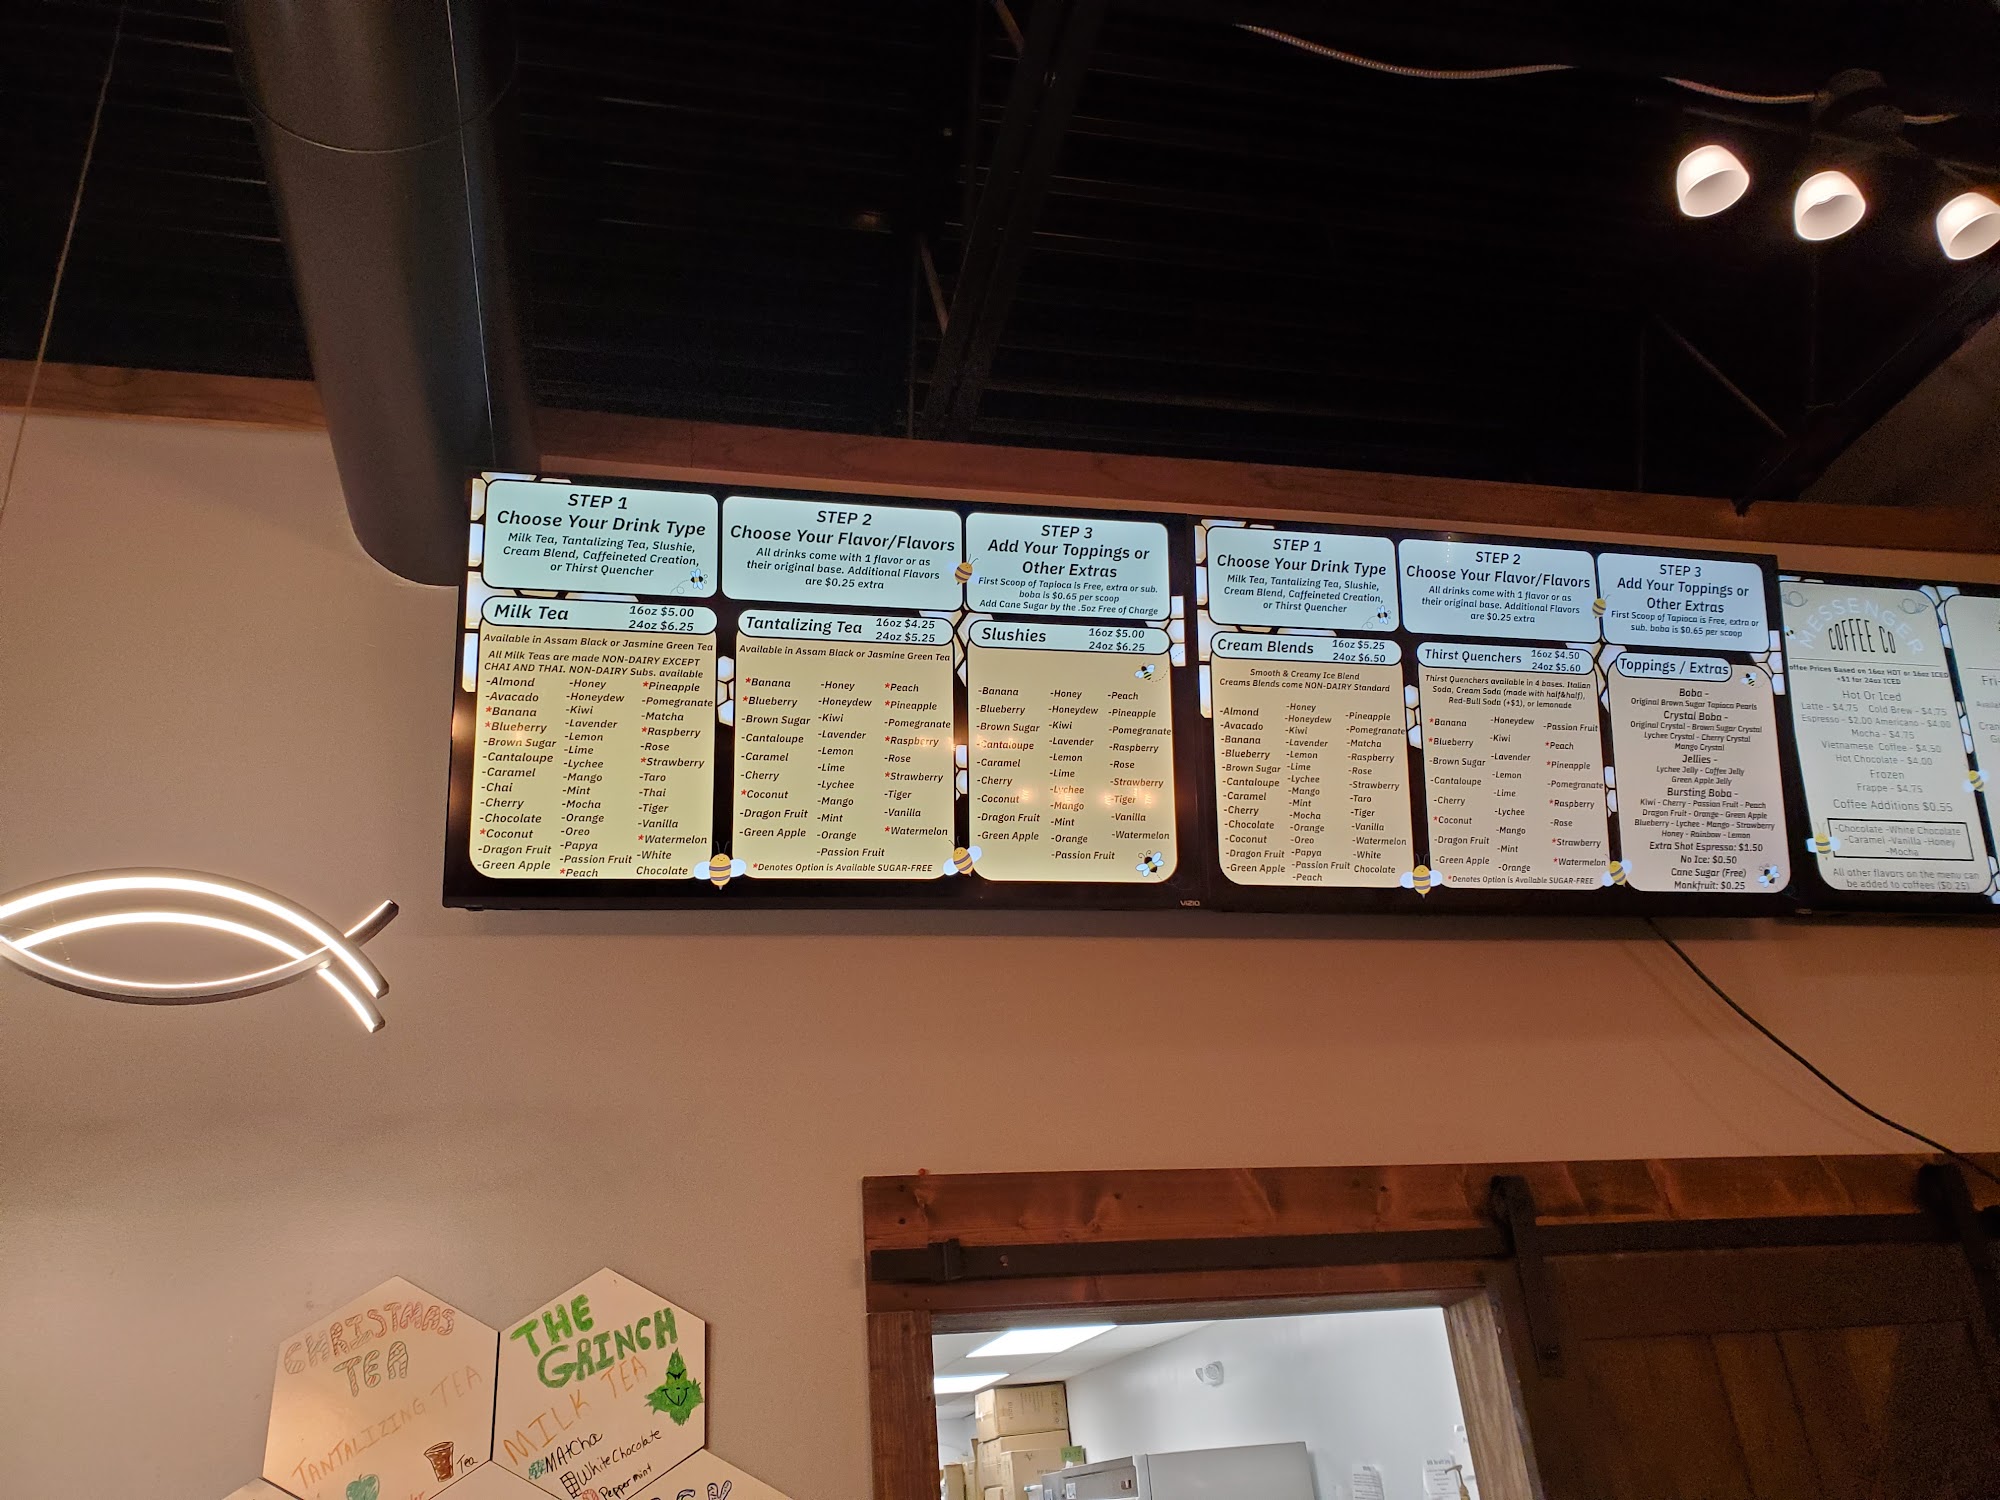 STEP 1
Choose Your Drink Type
Milk Tea, Tantalizing Tea, Slushie,
Cream Blend, Caffeineted Creation,
or Thirst Quencher
STEP 2
Choose Your Flavor/Flavors
All drinks come with 1 flavor or as
their original base. Additional Flavors
are $0.25 extra
STEP 3
Add Your Toppings or
Other Extras
First Scoop of Tapioca is Free, extra or sub.
boba is $0.65 per scoop
Add Cane Sugar by the .5oz Free of Charge
Milk Tea
16oz $5.00
24oz $6.25
Available in Assam Black or Jasmine Green Tea
All Milk Teas are made NON-DAIRY EXCEPT
CHAI AND THAI. NON-DAIRY Subs. available
-Almond
-Avacado
*Banana
*Blueberry
-Brown Sugar
-Cantaloupe
-Caramel
-Chai
-Cherry
-Chocolate
*Coconut
-Dragon Fruit
-Green Apple
-Honey
-Honeydew
-Kiwi
-Lavender
-Lemon
-Lime
-Lychee
-Mango
-Mint
-Mocha
-Orange
-Oreo
-Papya
-Passion Fruit
*Peach
*Pineapple
-Pomegranate
-Matcha
*Raspberry
-Rose
*Strawberry
-Taro
-Thai
-Tiger
-Vanilla
*Watermelon
-White
Chocolate
Tantalizing Tea
16oz $4.25
24oz $5.25
Available in Assam Black or Jasmine Green Tea
*Banana
*Blueberry
-Brown Sugar
-Cantaloupe
-Caramel
-Cherry
*Coconut
-Dragon Fruit
-Green Apple
-Honey
-Honeydew
-Kiwi
-Lavender
-Lemon
-Lime
-Lychee
-Mango
-Mint
-Orange
-Passion Fruit
*Peach
*Pineapple
-Pomegranate
*Raspberry
-Rose
*Strawberry
-Tiger
-Vanilla
*Watermelon
*Denotes Option is Available SUGAR-FREE
Slushies
16oz $5.00
24oz $6.25
-Banana
-Blueberry
-Brown Sugar
-Cantaloupe
-Caramel
-Cherry
-Coconut
-Dragon Fruit
-Green Apple
-Honey
-Honeydew
-Kiwi
-Lavender
-Lemon
-Lime
-Lychee
-Mango
-Mint
-Orange
-Passion Fruit
-Peach
-Pineapple
-Pomegranate
-Raspberry
-Rose
-Strawberry
-Tiger
-Vanilla
-Watermelon
VIZIO
STEP 1
Choose Your Drink Type
Milk Tea, Tantalizing Tea, Slushie,
Cream Blend, Caffeineted Creation,
or Thirst Quencher
STEP 2
Choose Your Flavor/Flavors
All drinks come with 1 flavor or as
their original base. Additional Flavors
are $0.25 extra
STEP 3
Add Your Toppings or
Other Extras
First Scoop of Tapioca is Free, extra or
sub. boba is $0.65 per scoop
Cream Blends
16oz $5.25
24oz $6.50
Smooth & Creamy Ice Blend
Creams Blends come NON-DAIRY Standard
-Almond
-Avacado
-Banana
-Blueberry
-Brown Sugar
-Cantaloupe
-Caramel
-Cherry
-Chocolate
-Coconut
-Dragon Fruit
-Green Apple
-Honey
-Honeydew
-Kiwi
-Lavender
-Lemon
-Lime
-Lychee
-Mango
-Mint
-Mocha
-Orange
-Oreo
-Papya
-Passion Fruit
-Peach
-Pineapple
-Pomegranate
-Matcha
-Raspberry
-Rose
-Strawberry
-Taro
-Tiger
-Vanilla
-Watermelon
-White
Chocolate
Thirst Quenchers
16oz $4.50
24oz $5.60
Thirst Quenchers available in 4 bases. Italian
Soda, Cream Soda (made with half&half),
Red-Bull Soda (+$1), or lemonade
*Banana
*Blueberry
-Brown Sugar
-Cantaloupe
-Cherry
*Coconut
-Dragon Fruit
-Green Apple
-Honeydew
-Kiwi
-Lavender
-Lemon
-Lime
-Lychee
-Mango
-Mint
-Orange
-Passion Fruit
*Peach
*Pineapple
-Pomegranate
*Raspberry
-Rose
*Strawberry
*Watermelon
*Denotes Option is Available SUGAR-FREE
Toppings / Extras
Boba -
Original Brown Sugar Tapioca Pearls
Crystal Boba -
Original Crystal - Brown Sugar Crystal
Lychee Crystal - Cherry Crystal
Mango Crystal
Jellies -
Lychee Jelly - Coffee Jelly
Green Apple Jelly
Bursting Boba -
Kiwi - Cherry - Passion Fruit - Peach
Dragon Fruit - Orange - Green Apple
Blueberry - Lychee - Mango - Strawberry
Honey - Rainbow - Lemon
Extra Shot Espresso: $1.50
No Ice: $0.50
Cane Sugar (Free)
Monkfruit: $0.25
MESSENGER
COFFEE CO
offee Prices Based on 16oz HOT or 16oz ICED
+$1 for 24oz ICED
Hot Or Iced
Latte - $4.75 Cold Brew - $4.75
Espresso - $2.00 Americano - $4.00
Mocha - $4.75
Vietnamese Coffee - $4.50
Hot Chocolate - $4.00
Frozen
Frappe - $4.75
Coffee Additions $0.55
-Chocolate -White Chocolate
-Caramel -Vanilla -Honey
-Mocha
All other flavors on the menu can
be added to coffees ($0.25)
CHRISTMAS
TEA
TANTALIZING TEA
Tea
THE
GRINCH
MILK TEA
MAtCha
White Chocolate
Peppermint